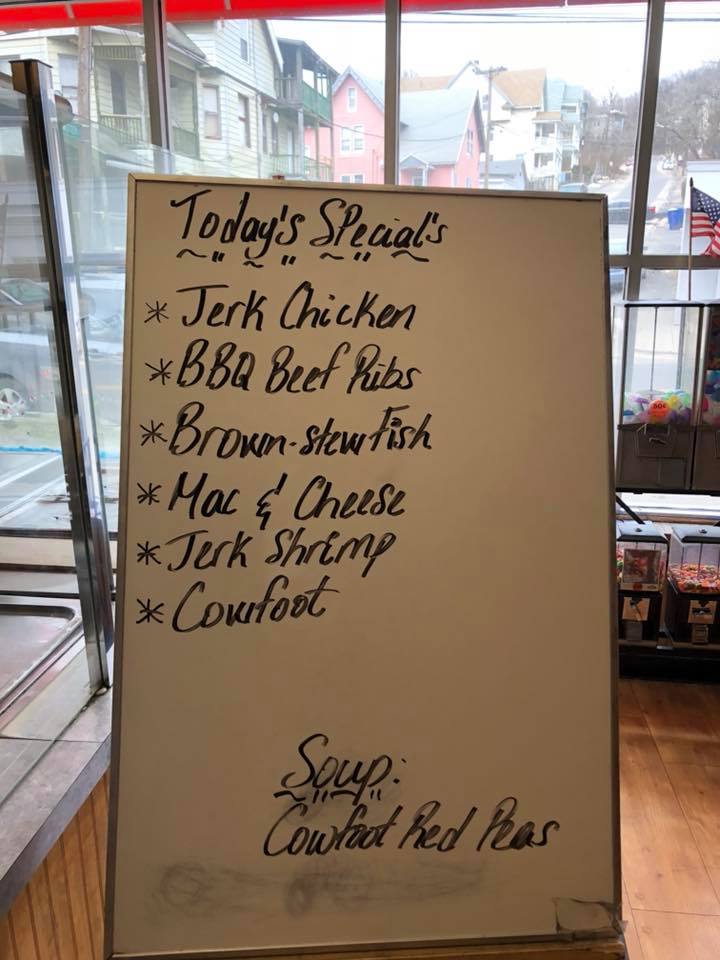 Today's Special's
* Jerk Chicken
* BBQ Beef Ribs
* Brown-stew Fish
* Mac & Cheese
* Jerk Shrimp
* Cowfoot
Soup:
Cowfoot Red Peas
50¢